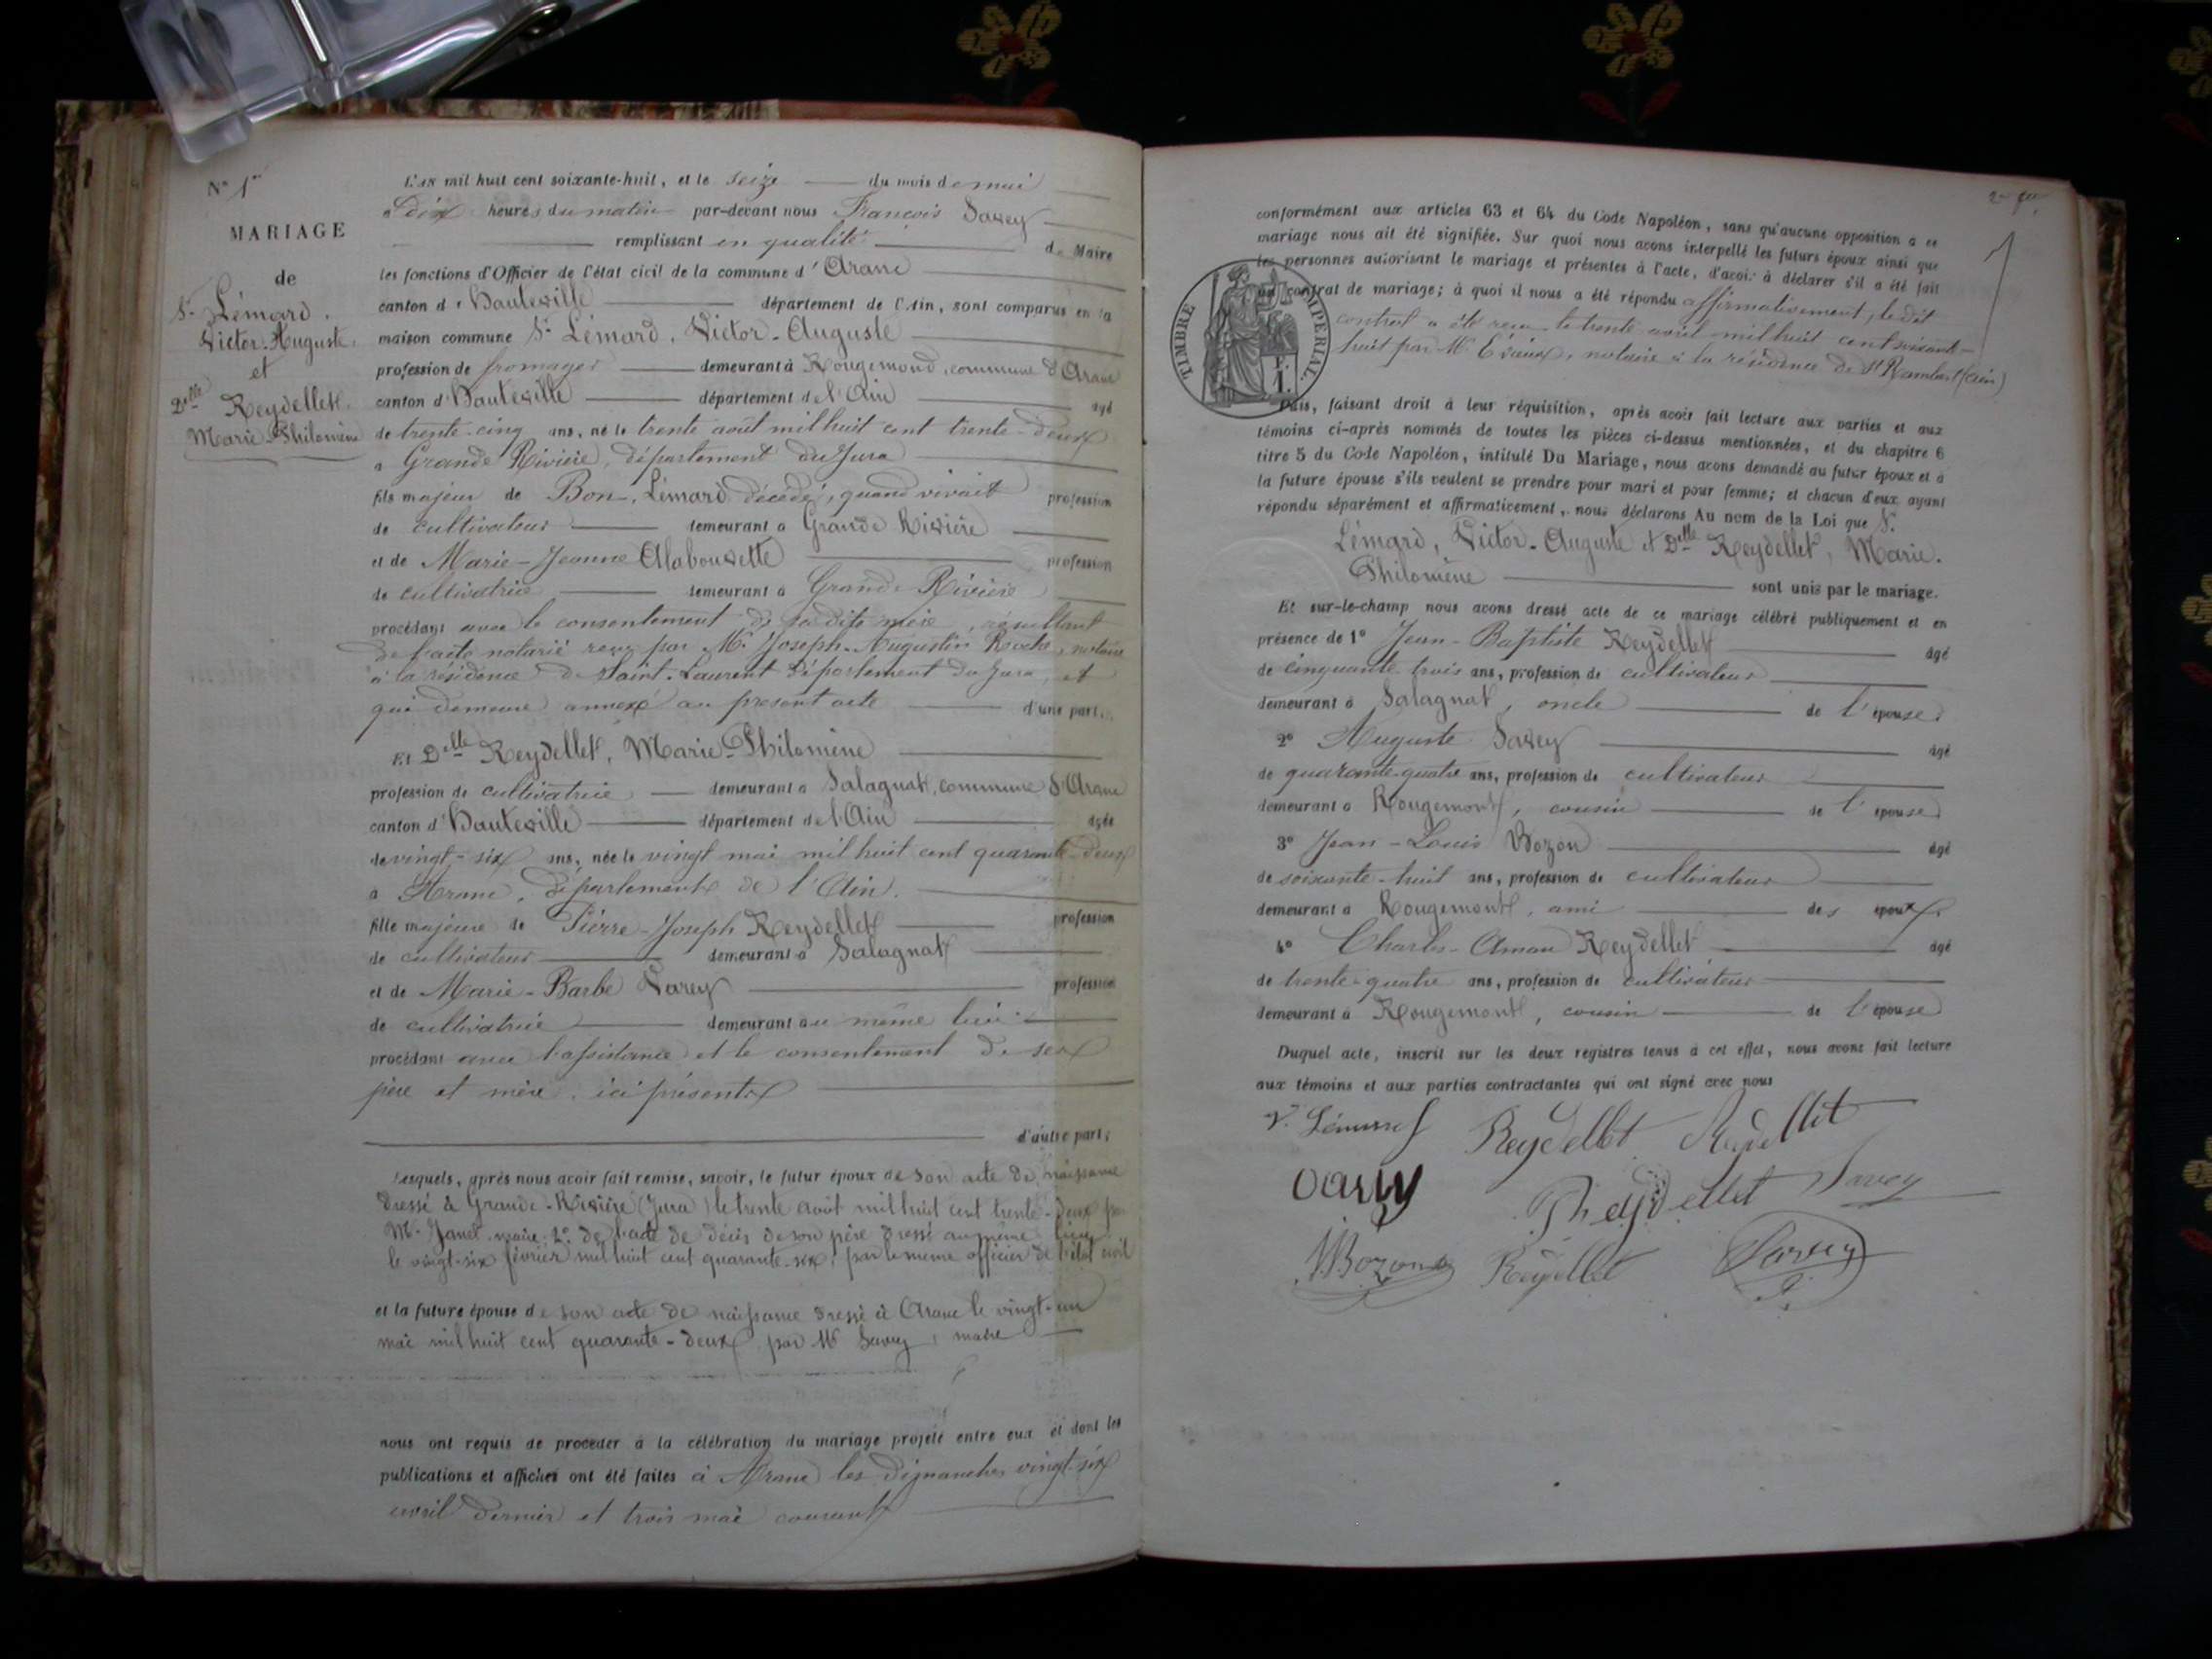 N° 1er
MARIAGE
de
Sr Lémard,
Victor-Auguste,
et
Delle Reydellet,
Marie-Philomène
L'AN mil huit cent soixante-huit, et le seize du mois de mai
à dix heures du matin par-devant nous François Savey
remplissant en qualité de Maire
les fonctions d'Officier de l'état civil de la commune d'Aranc
canton d'Hauteville département de l'Ain, sont comparus en la
maison commune Sr Lémard, Victor-Auguste
profession de fromager demeurant à Rougemond, commune d'Aranc
canton d'Hauteville département de l'Ain âgé
de trente-cinq ans, né le trente août mil huit cent trente-deux
à Grande Rivière, département du Jura
fils majeur de Bon, Lémard décédé, quand vivait profession
de cultivateur demeurant à Grande Rivière
et de Marie-Jeanne Alabouvette profession
de cultivatrice demeurant à Grande-Rivière
procédant avec le consentement de sa dite mère, résultant
de l'acte notarié reçu par Mr Joseph-Augustin notaire
à la résidence de Saint-Laurent département du Jura, et
qui demeure annexé au présent acte d'une part;
Et Delle Reydellet, Marie-Philomène
profession de cultivatrice demeurant à Salagnat, commune d'Aranc
canton d'Hauteville département de l'Ain âgée
de vingt-six ans, née le vingt mai mil huit cent quarante-deux
à Aranc, département de l'Ain.
fille majeure de Pierre-Joseph Reydellet profession
de cultivateur demeurant à Salagnat
et de Marie-Barbe Savey profession
de cultivatrice demeurant au même lieu
procédant avec l'assistance et le consentement de ses
père et mère, ici présents
d'autre part;
Lesquels, après nous avoir fait remise, savoir, le futur époux de son acte de naissance
dressé à Grande-Rivière (Jura) le trente août mil huit cent trente-deux par
Mr Janet maire; 2° de l'acte de décès de son père dressé au même lieu
le vingt-six février mil huit cent quarante-six, par le même officier de l'état civil
et la future épouse de son acte de naissance dressé à Aranc le vingt-un
mai mil huit cent quarante-deux, par Mr Savey, maire
nous ont requis de procéder à la célébration du mariage projeté entre eux et dont les
publications et affiches ont été faites à Aranc les dimanches vingt-six
avril dernier et trois mai courant
conformément aux articles 63 et 64 du Code Napoléon, sans qu'aucune opposition à ce
mariage nous ait été signifiée. Sur quoi nous avons interpellé les futurs époux ainsi que
les personnes autorisant le mariage et présentes à l'acte, d'avoir à déclarer s'il a été fait
un contrat de mariage; à quoi il nous a été répondu affirmativement, le dit
contrat a été reçu le trente avril mil huit cent soixante-
huit par Mr notaire à la résidence de St Rambert (Ain)
TIMBRE IMPÉRIAL.
Puis, faisant droit à leur réquisition, après avoir fait lecture aux parties et aux
témoins ci-après nommés de toutes les pièces ci-dessus mentionnées, et du chapitre 6
titre 5 du Code Napoléon, intitulé Du Mariage, nous avons demandé au futur époux et à
la future épouse s'ils veulent se prendre pour mari et pour femme; et chacun d'eux ayant
répondu séparément et affirmativement, nous déclarons Au nom de la Loi que Sr
Lémard, Victor-Auguste et Delle Reydellet, Marie-
Philomène sont unis par le mariage.
Et sur-le-champ nous avons dressé acte de ce mariage célébré publiquement et en
présence de 1° Jean-Baptiste Reydellet âgé
de cinquante trois ans, profession de cultivateur
demeurant à Salagnat, oncle de l'épouse.
2° Auguste Savey âgé
de quarante-quatre ans, profession de cultivateur
demeurant à Rougemont, cousin de l'épouse.
3° Jean-Louis Bozon âgé
de soixante-huit ans, profession de cultivateur
demeurant à Rougemont, ami des époux.
4° Charles-Aman Reydellet âgé
de trente-quatre ans, profession de cultivateur
demeurant à Rougemont, cousin de l'épouse
Duquel acte, inscrit sur les deux registres tenus à cet effet, nous avons fait lecture
aux témoins et aux parties contractantes qui ont signé avec nous
V. Lémard Reydellet Reydellet
Savey Reydellet Savey
Bozon Reydellet Savey